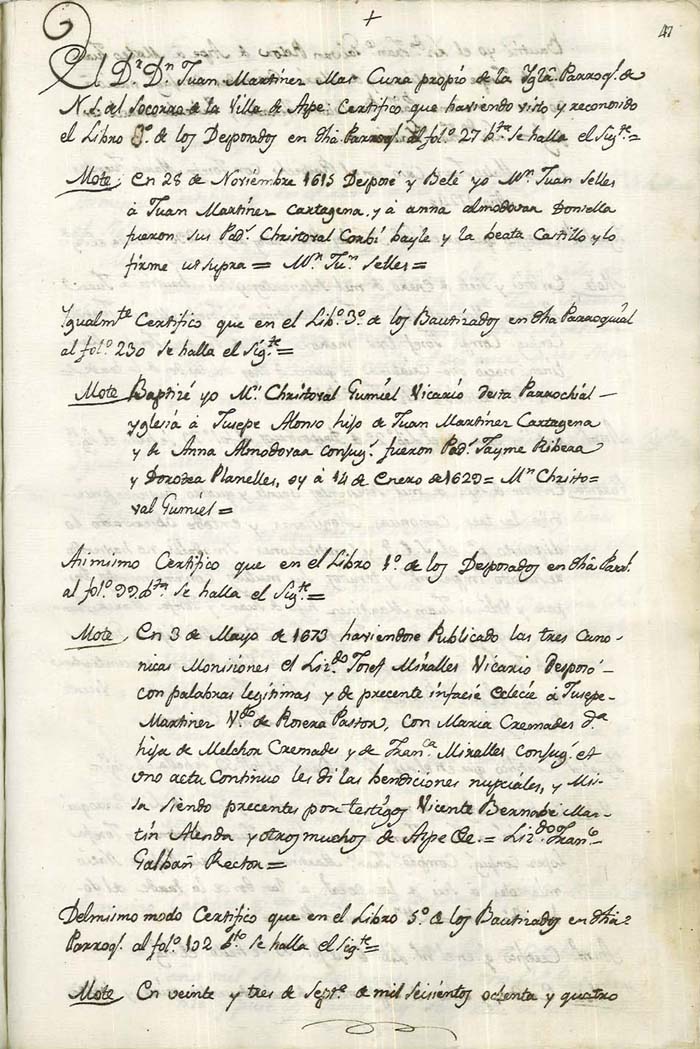 +
47
El D.r D.n Juan Martínez Mas Cura propio de la Ygl.a Parroq.l de
N. S. del Socorro de la Villa de Aspe: Certifico que haviendo visto y reconosido
el Libro de los Desposados en dha Parroq.l al fol.o 27 b.ta se halla el Sig.te =
Mote; En 28 de Noviembre 1615 Desposé y Belé yo M.n Juan Selles
à Juan Martínez Cartagena, y à anna almodovar Donsella
fueron sus Pad.s Christoval Corbí bayle y la beata Castillo y lo
firme ut supra = M.n Ju.n Selles =
Ygualm.te Certifico que en el Lib.o 3.o de los Bautizados en dha Parroquial
al fol.o 230 se halla el sig.te =
Mote Baptizé yo M.n Christoval Gumiel Vicario desta Parrochial
yglesia à Jusepe Alonso hijo de Juan Martínez Cartagena
y de Anna Almodovar conjug.s fueron Pad.s Jayme Ribera
y Dorotea Planelles, oy à 14 de Enero de 1629 = M.n Christo=
val Gumiel =
Asimismo Certifico que en el Libro 1.o de los Desposados en dha Parr.l
al fol.o 99 b.ta se halla el Sig.te =
Mote, En 3 de Mayo de 1673 haviendose Publicado las tres Cano-
nicas Monisiones el Liz.do Josef Miralles Vicario Desposó-
con palabras legitimas y de precente infacie eclecie à Jusepe-
Martinez V.do de Rosera Pastor, con Maria Cremades d.a
hija de Melchor Cremades y de Fran.ca Miralles conjug.s et
uno actu continuo les di las bendiciones nupciales, y Mi-
sa siendo precentes por testigos Vicente Bernabé Mar-
tín Alenda y otros muchos de Aspe &c. = Liz.do Fran.co
Galbañ Rector =
Delmismo modo Certifico que en el Libro 5.o de los Bautizados en dha
Parroq.l al fol.o 102 b.to se halla el sig.te =
Mote, En veinte y tres de Sept.e de mil seisientos ochenta y quatro